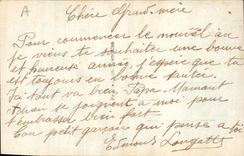 A
Chère Grand-mère
Pour commencer le nouvel an
je viens te souhaiter une bonne
et heureuse année, j'espère que tu
est toujours en bonne santée.
Ici tout va bien. Papa Maman
se joignent a moi pour
t'embrasser bien fort.
Ton petit garçon qui pense a toi
Edmond